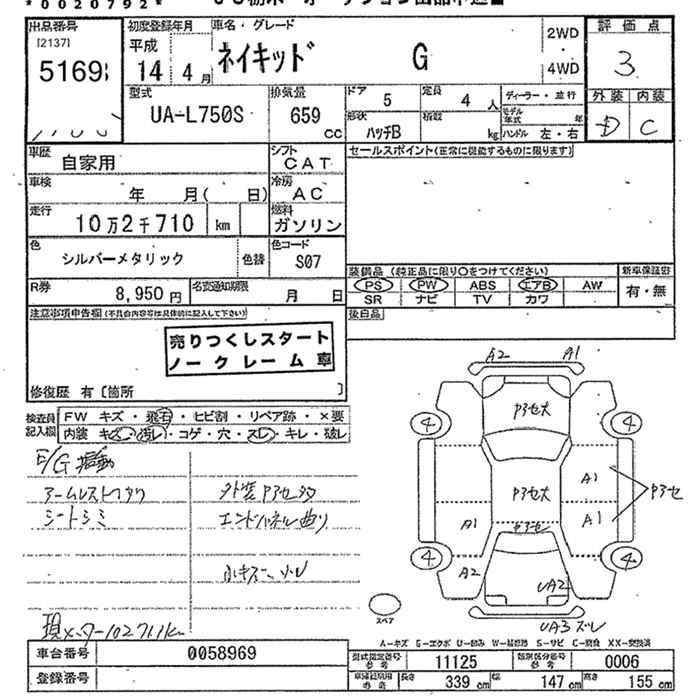 *0020792*
出品番号
[2137]
5169
初度登録年月
平成
14 4月
車名・グレード
ネイキッド G
2WD
4WD
評価点
3
外装 内装
D C
型式
UA-L750S
排気量
659
cc
ドア 5
定員 4 人
形状
ハッチB
積載
kg
ディーラー・並行
モデル年式 年
ハンドル 左・右
車歴
自家用
シフト
CAT
セールスポイント(正常に機能するものに限ります)
車検
年 月( 日)
冷房
AC
走行
10万2千710 km
燃料
ガソリン
色
シルバーメタリック
色替
色コード
S07
装備品(純正品に限り○をつけてください)
新車保証書
PS PW ABS エアB AW
有・無
SR ナビ TV カワ
R券
8,950円
名変通知期限
月 日
後日品
注意事項申告欄(不具合内容等は具体的に記入して下さい)
売りつくしスタート
ノークレーム車
修復歴 有〔箇所 〕
検査員
記入欄
FW キズ・飛石・ヒビ割・リペア跡・×要
内装 キズ・汚レ・コゲ・穴・スレ・キレ・破レ
E/G
アームレスト
シートシミ
外装アセ
エンドパネル曲り
小キズ
A2 A1
アセ大
4 4
A1
アセ大
A1 A1
アセ
アセ
4 4
A2
UA2
UA3 ズレ
スペア
A-キズ G-エクボ U-凹ミ W-補修跡 S-サビ C-腐食 XX-交換済
車台番号
0058969
型式指定番号
参考
11125
類別区分番号
参考
0006
登録番号
参考
長さ 339 cm
幅 147 cm
高さ 155 cm